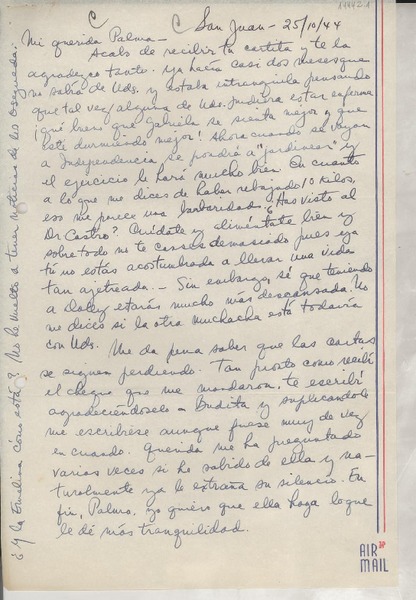 144421
San Juan - 25/10/44
Mi querida Palma -
Acabo de recibir tu cartita y te la
agradezco tanto. Ya hacía casi dos meses que
no sabía de Uds. y estaba intranquila pensando
que tal vez alguna de Uds. pudiera estar enferma
¡qué bueno que Gabriela se sienta mejor y que
esté durmiendo mejor! Ahora cuando se vayan
a Independencia se pondrá a "jardinear" y
el ejercicio le hará mucho bien. En cuanto
a lo que me dices de haber rebajado 10 kilos,
eso me parece una barbaridad. ¿Has visto al
Dr Castro? Cuídate y aliméntate bien y
sobre todo no te canses demasiado pues ya
tú no estás acostumbrada a llevar una vida
tan ajetreada. - Sin embargo, sé que teniendo
a estarás mucho más descansada. No
me dices si la otra muchacha está todavía
con Uds.
Me da pena saber que las cartas
se siguen perdiendo. Tan pronto como recibí
el cheque que me mandaron, te escribí
agradeciéndoselo a Budita y suplicándole
me escribiese aunque fuese muy de vez
en cuando. Querida me ha preguntado
varias veces si he sabido de ella y na-
turalmente ya le extraña su silencio. En
fin, Palma, yo quiero que ella haga lo que
le dé más tranquilidad.
¿Y la Emelina cómo está? No he vuelto a tener noticias de los
AIR MAIL